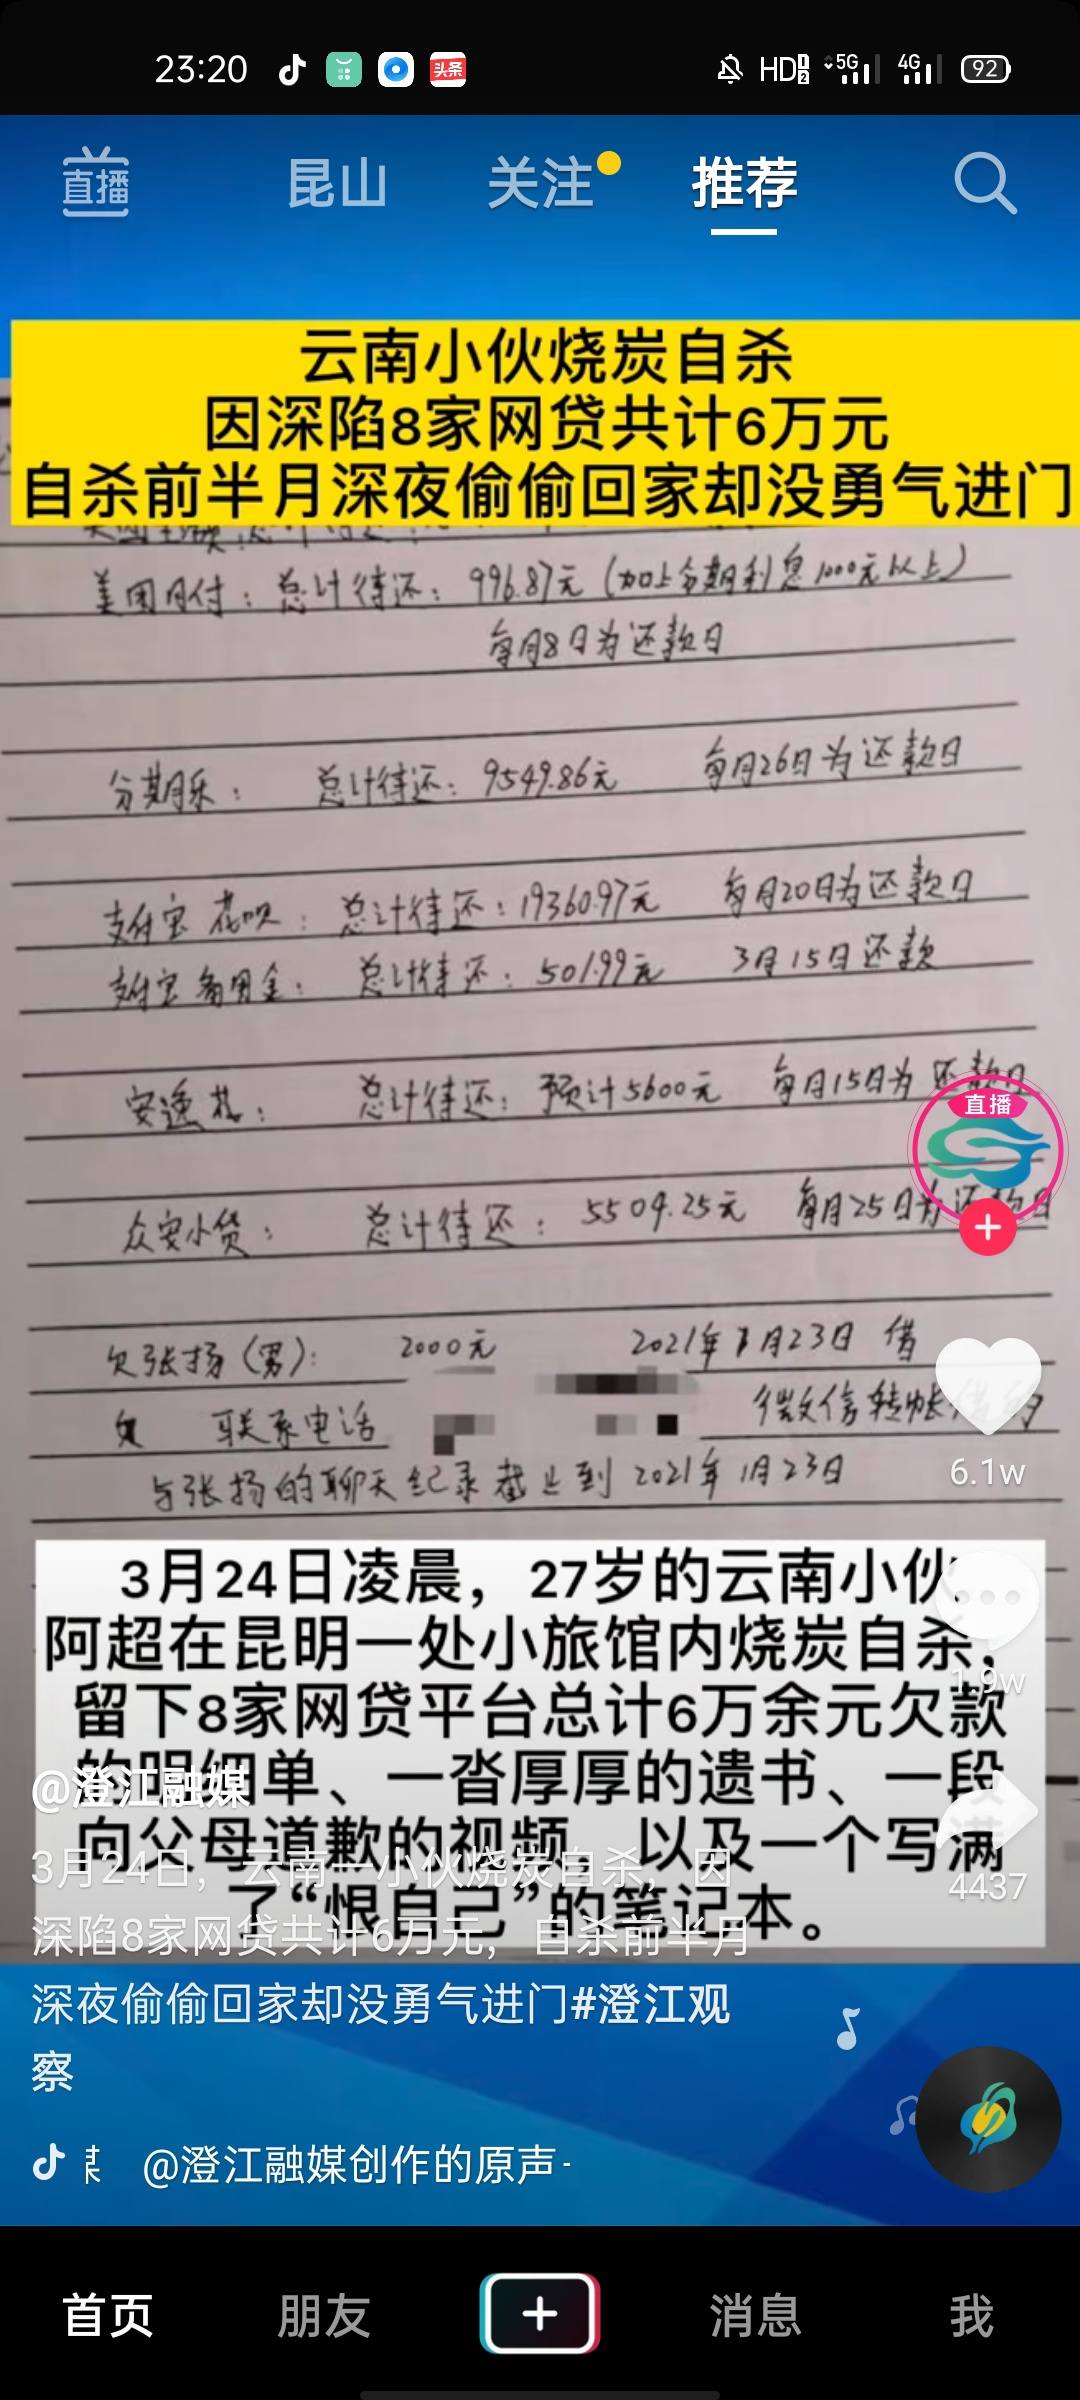 23:20
头条
HD 1 2 5G 4G 92
直播
昆山
关注
推荐
云南小伙烧炭自杀
因深陷8家网贷共计6万元
自杀前半月深夜偷偷回家却没勇气进门
美团月付：总计待还：996.87元（加上分期利息1000元以上）
每月8日为还款日
分期乐：总计待还：9549.86元 每月26日为还款日
支付宝花呗：总计待还：19360.97元 每月20日为还款日
支付宝备用金：总计待还：501.99元 3月15日还款
安逸花：总计待还：预计5600元 每月15日为还款日
直播
众安小贷：总计待还：5504.25元 每月25日为还款日
欠张扬（男）：2000元 2021年1月23日 借
6.1w
联系电话 微信转帐
与张扬的聊天纪录截止到2021年1月23日
3月24日凌晨，27岁的云南小伙
阿超在昆明一处小旅馆内烧炭自杀，
1.9w
留下8家网贷平台总计6万余元欠款
的明细单、一沓厚厚的遗书、一段
向父母道歉的视频，以及一个写满
了“恨自己”的笔记本。
4437
@澄江融媒
3月24日，云南一小伙烧炭自杀，因
深陷8家网贷共计6万元，自杀前半月
深夜偷偷回家却没勇气进门#澄江观
察
@澄江融媒创作的原声-
首页
朋友
消息
我